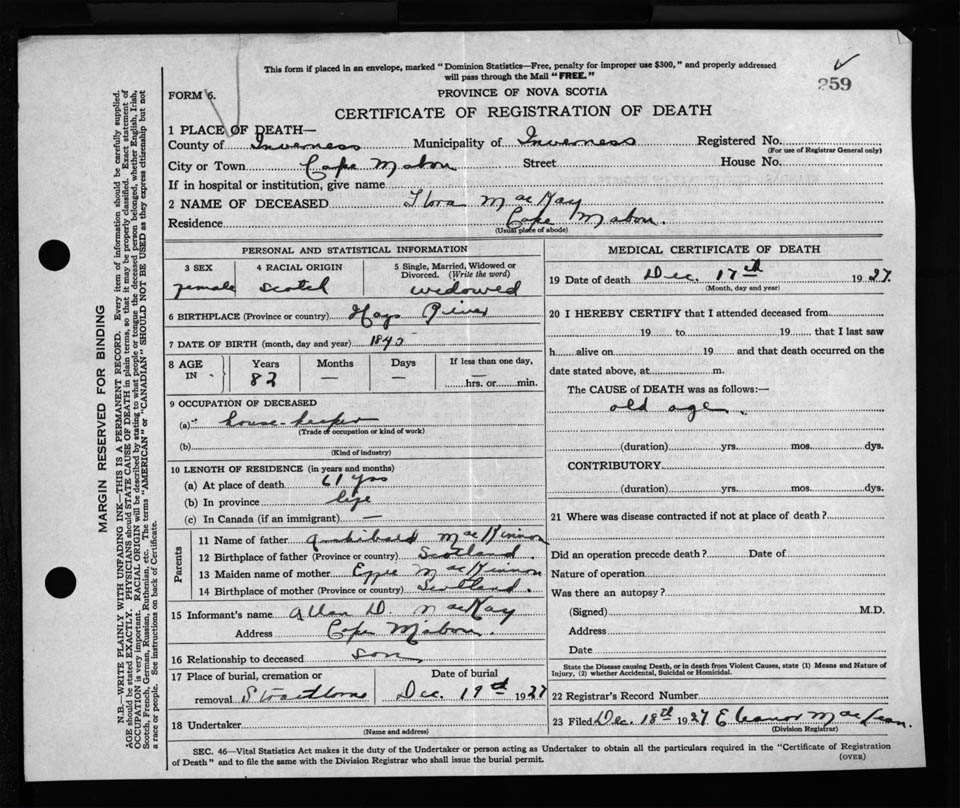 This form if placed in an envelope, marked "Dominion Statistics—Free, penalty for improper use $300," and properly addressed
will pass through the Mail "FREE."
259
FORM 6.
PROVINCE OF NOVA SCOTIA
CERTIFICATE OF REGISTRATION OF DEATH
1 PLACE OF DEATH—
County of Inverness Municipality of Inverness Registered No.
(For use of Registrar General only)
City or Town Cape Mabou Street House No.
If in hospital or institution, give name
2 NAME OF DECEASED Flora MacKay
Residence Cape Mabou.
(Usual place of abode)
PERSONAL AND STATISTICAL INFORMATION
3 SEX 4 RACIAL ORIGIN 5 Single, Married, Widowed or
Divorced. (Write the word)
female Scotch widowed
6 BIRTHPLACE (Province or country) Hays River
7 DATE OF BIRTH (month, day and year)
8 AGE Years Months Days If less than one day,
IN 82 — — —
hrs. or min.
9 OCCUPATION OF DECEASED
(a) house-keeper
(Trade of occupation or kind of work)
(b)
(Kind of industry)
10 LENGTH OF RESIDENCE (in years and months)
(a) At place of death 61 yrs
(b) In province life
(c) In Canada (if an immigrant) —
Parents
11 Name of father Archibald MacKinnon
12 Birthplace of father (Province or country) Scotland.
13 Maiden name of mother MacKinnon
14 Birthplace of mother (Province or country) Scotland.
15 Informant's name Allan D. MacKay
Address Cape Mabou.
16 Relationship to deceased son
17 Place of burial, cremation or Date of burial
removal Strathlorne Dec. 19th 1927
18 Undertaker
(Name and address)
MEDICAL CERTIFICATE OF DEATH
19 Date of death Dec. 17th 1927.
(Month, day and year)
20 I HEREBY CERTIFY that I attended deceased from
19 to 19 that I last saw
h alive on 19 and that death occurred on the
date stated above, at m.
The CAUSE of DEATH was as follows:—
old age.
(duration) yrs. mos. dys.
CONTRIBUTORY
(duration) yrs. mos. dys.
21 Where was disease contracted if not at place of death?
Did an operation precede death? Date of
Nature of operation
Was there an autopsy?
(Signed) M.D.
Address
Date
State the Disease causing Death, or in death from Violent Causes, state (1) Means and Nature of
Injury, (2) whether Accidental, Suicidal or Homicidal.
22 Registrar's Record Number
23 Filed Dec. 18th 1927 Eleanor MacLean.
(Division Registrar)
SEC. 46—Vital Statistics Act makes it the duty of the Undertaker or person acting as Undertaker to obtain all the particulars required in the "Certificate of Registration
of Death" and to file the same with the Division Registrar who shall issue the burial permit.
(OVER)
MARGIN RESERVED FOR BINDING
N.B.—WRITE PLAINLY WITH UNFADING INK—THIS IS A PERMANENT RECORD. Every item of information should be carefully supplied.
AGE should be stated EXACTLY. PHYSICIANS should STATE CAUSE OF DEATH in plain terms, so that it may be properly classified. Exact statement of
OCCUPATION is very important. RACIAL ORIGIN will be described by stating to what people or tongue the deceased person belonged, whether English, Irish,
Scotch, French, German, Russian, Ruthenian, etc. The terms "AMERICAN" or "CANADIAN" SHOULD NOT BE USED as they express citizenship but not
a race or people. See instructions on back of Certificate.